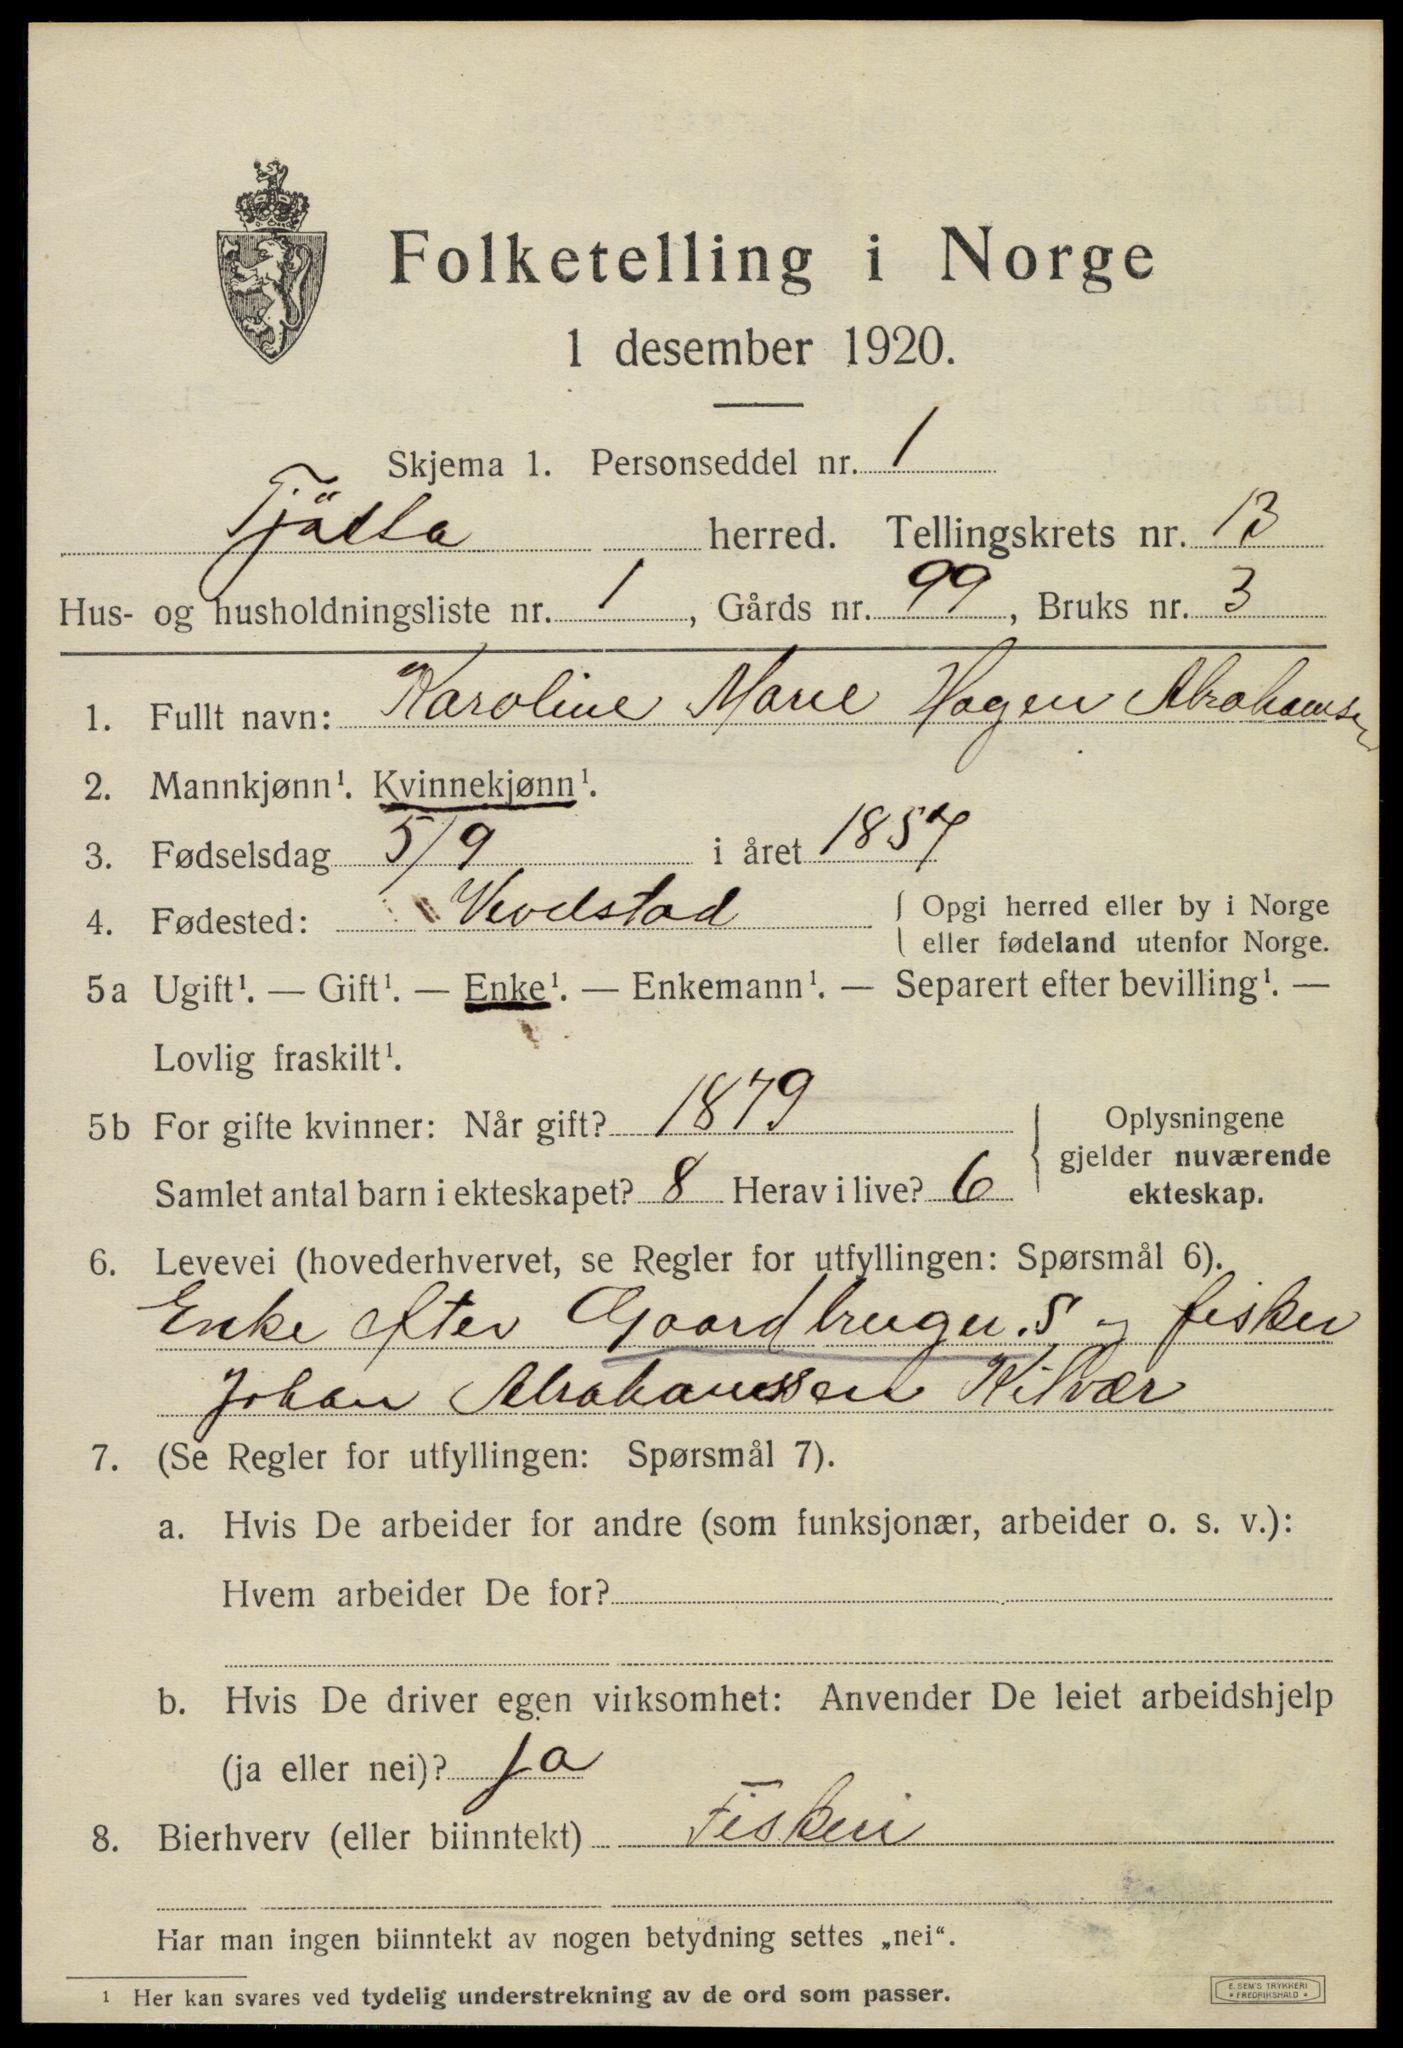 Folketelling i Norge
1 desember 1920.
Skjema 1. Personseddel nr. 1
Tjötta herred. Tellingskrets nr. 13
Hus- og husholdningsliste nr. 1, Gårds nr. 99, Bruks nr. 3
1. Fullt navn: Karoline Marie Hagen Abrahamsen
2. Mannkjønn¹. Kvinnekjønn¹.
3. Fødselsdag 5/9 i året 1857
4. Fødested: Vevelstad { Opgi herred eller by i Norge
eller fødeland utenfor Norge.
5a Ugift¹. — Gift¹. — Enke¹. — Enkemann¹. — Separert efter bevilling¹. —
Lovlig fraskilt¹.
5b For gifte kvinner: Når gift? 1879
Samlet antal barn i ekteskapet? 8 Herav i live? 6
{ Oplysningene
gjelder nuværende
ekteskap.
6. Levevei (hovederhvervet, se Regler for utfyllingen: Spørsmål 6).
Enke efter Gaardbruger. S og fisker
Johan Abrahamssen Kilvær
7. (Se Regler for utfyllingen: Spørsmål 7).
a. Hvis De arbeider for andre (som funksjonær, arbeider o. s. v.):
Hvem arbeider De for?
b. Hvis De driver egen virksomhet: Anvender De leiet arbeidshjelp
(ja eller nei)? ja
8. Bierhverv (eller biinntekt) Fiskeri
Har man ingen biinntekt av nogen betydning settes „nei“.
¹ Her kan svares ved tydelig understrekning av de ord som passer.
E. SEM'S TRYKKERI
FREDRIKSHALD